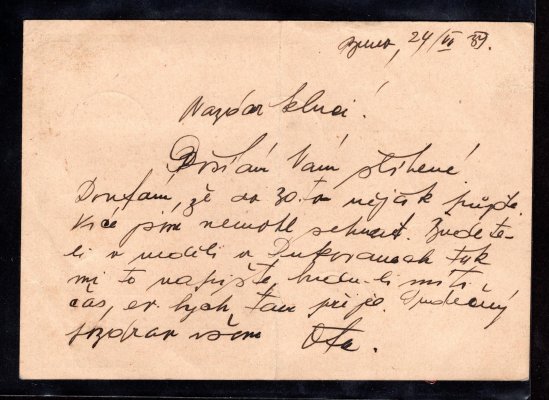 Brno, 24/VI 39.
Nazdar kluci!
Posílám Vám slíbené.
Doufám, že do 30. to nějak půjde.
Více jsem nemohl sehnat. Budete-
li v neděli v Dukovanech tak
mi to napište budu-li míti
čas, bych tam přijel. Srdečný
pozdrav všem Ota.